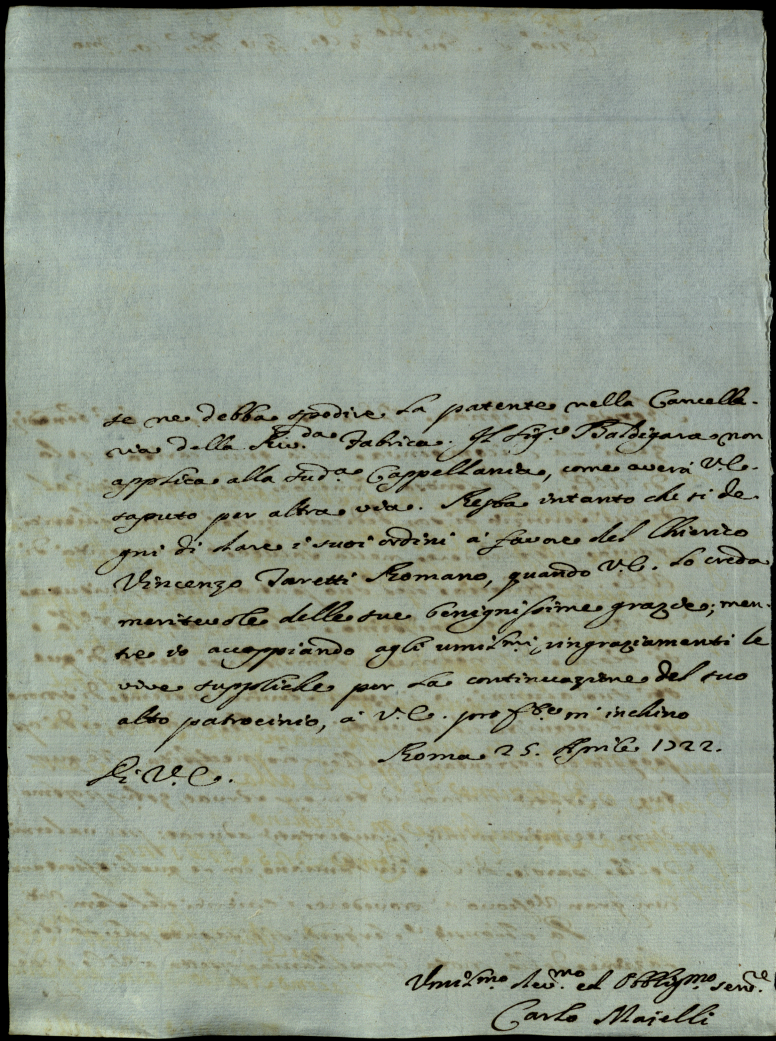 se ne debba spedire la patente nella Cancella-
ria della Riv.da Fabrica. Il Sig.r Baldigara non
applica alla sud.a Cappellania, come averà V.E.
saputo per altra via. Resta intanto che si de-
gni di dare i suoi ordini à favore del Chierico
Vincenzo Taretti Romano, quando V.E. lo creda
meritevole delle sue benignissime grazie; men-
tre io accoppiando agli umil.mi ringraziamenti le
vive suppliche per la continuazione del suo
alto patrocinio, à V.E. prof.te m'inchino
Roma 25. Aprile 1722.
Di V.E.
Umil.mo Dev.mo ed Obblig.mo serv.re
Carlo Majelli